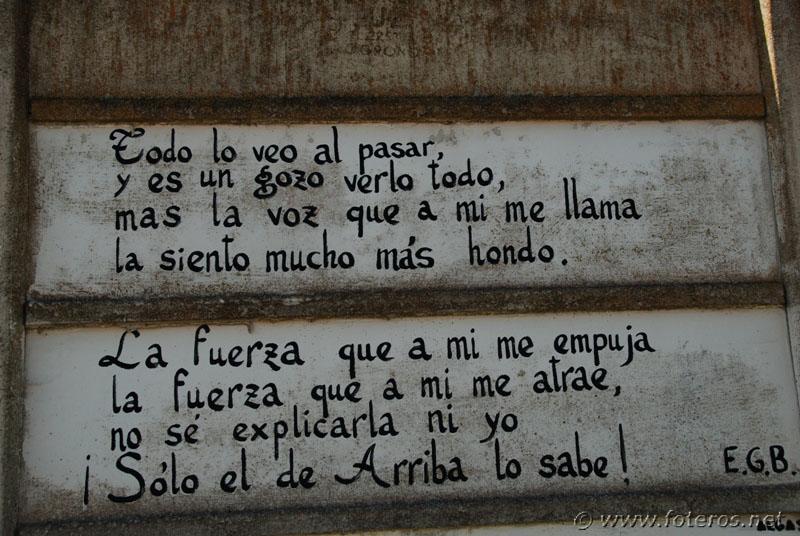 Todo lo veo al pasar,
y es un gozo verlo todo,
mas la voz que a mi me llama
la siento mucho más hondo.
La fuerza que a mi me empuja
la fuerza que a mi me atrae,
no sé explicarla ni yo
¡Sólo el de Arriba lo sabe!
E.G.B.
© www.foteros.net